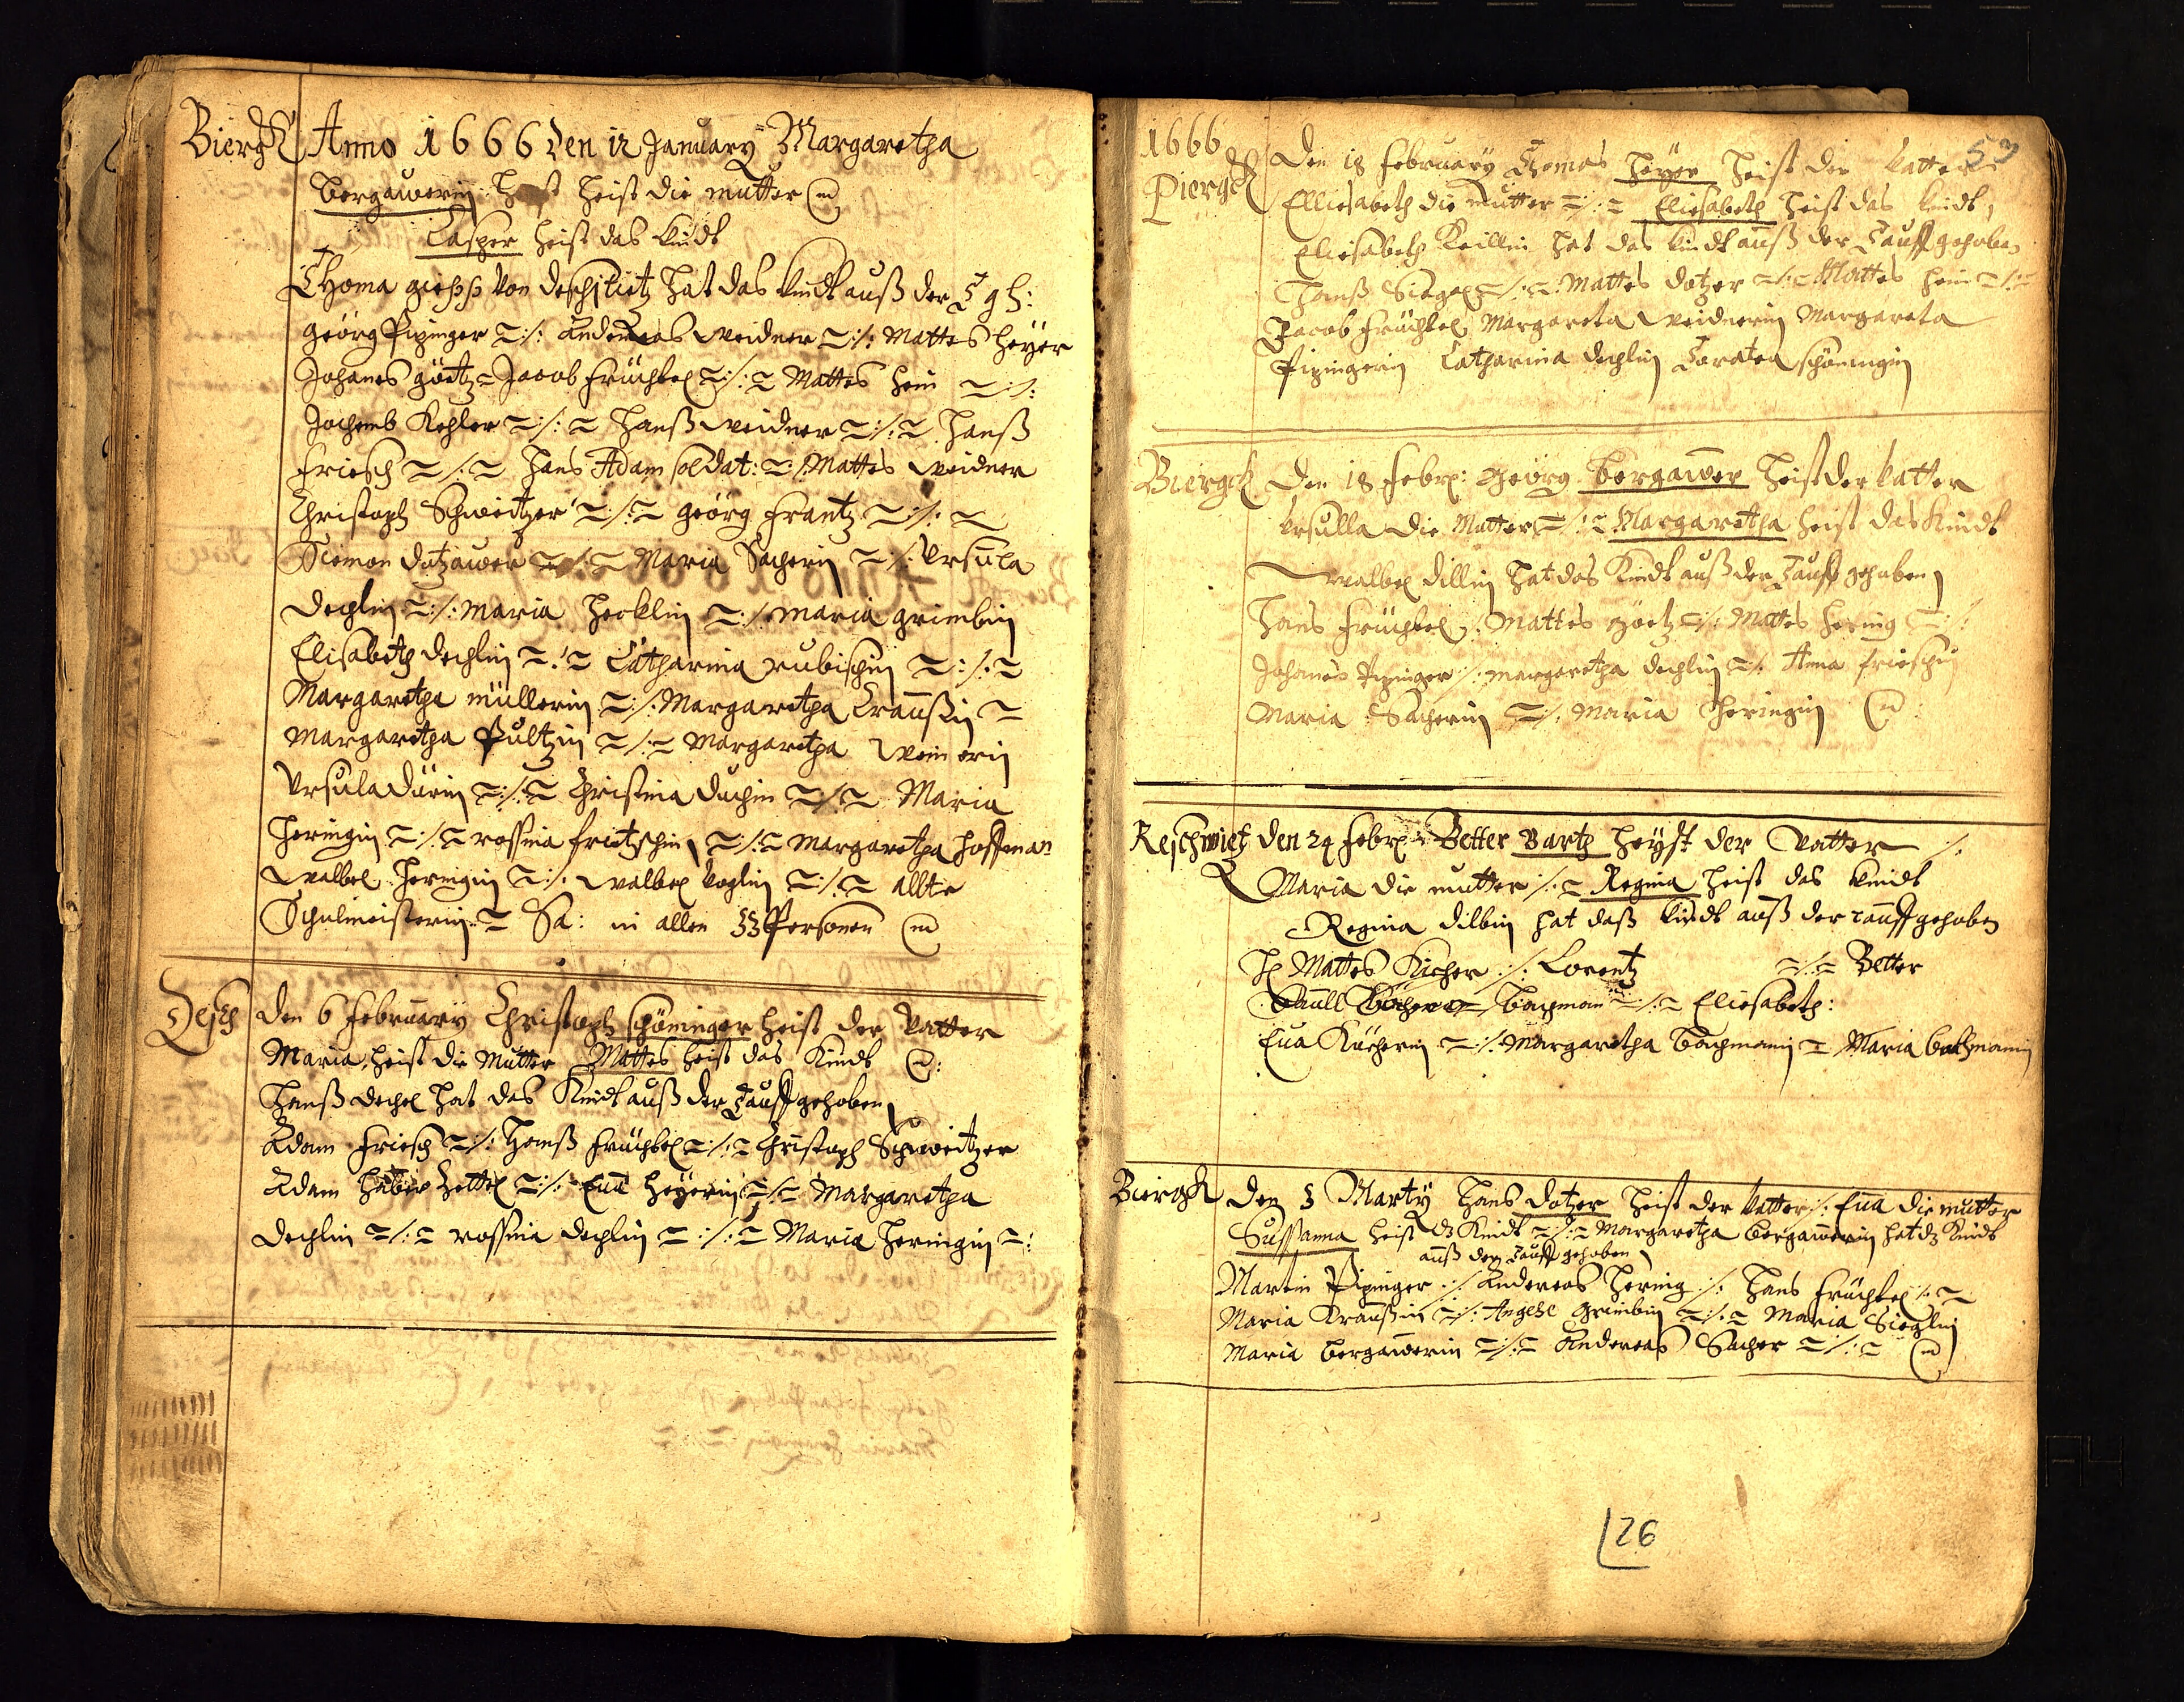 Biergk
Anno 1666 den 12 January Margaretha
bergawerin heist die mutter
Casper heist das kindt
Thoma von deschitietz hat das kindt auß der T g h:
georg Pipinger =:/: Andereas weidner =:/: Mattes heyer
Johanes göetz = Jacob früchtel =:/:= Mattes hein =:/:
Jochemb Kehler =:/:= Hanß weidner =:/:= Hanß
friesch =/:= Hans Adam soldat: =:/: Mattes weidner
Christoph Schweitzer =:/:= georg frantz =:/:=
Siemon dotzawer =/:= Maria Sacherin =:/: Ursula
dechlin =:/: Maria hecklin =:/: maria grimbin
Elisabeth dechlin =:/:= Catharina rubischin =:/:=
Margaretha müllerin =:/: Margaretha Craußin =
Margaretha Pultzin =/:= Margaretha
Ursula dürin =:/:= Christina duchin =:/:= Maria
heringin =:/:= rossina frietzschin =:/:= margaretha hoffman
walbel heringin =:/: walbel voglin =:/:= allte
Schulmeisterin = Sa: in allen 33 Personen
den 6 February Christoph schöninger heist der vatter
Maria heist die Mutter Mattes heist das Kindt
Hanß dechel hat das Kindt auß der Tauff gehoben
Adam friesch =:/: Hanß früchtel =:/:= Christoph Schweitzer
Adam haber zettel =:/: Eua heyerin =:/:= Margaretha
dechlin =/:= rossina dechlin =:/:= Maria heringin =:
1666
Piergk
53
den 18 February Thomas heyer heist der vatter
Elliesabeth die mutter =:/:= Eliesabeth heist das kindt
Eliesabeth Keillin hat das kindt auß der Tauff gehoben
Hanß Siegel =/:= Mattes dotzer =/:= Mattes hein =/:=
Jacob früchtel Margareta weidnerin Margareta
Pipingerin Catharina dechlin Toratea schöningin
Biergck
den 18 Febr: georg bergawer heist der vatter
Ursulla die Mutter =/:= Margaretha heist das Kindt
walbel dillin hat das Kindt auß der Tauff gehoben
Hans früchtel /: Mattes göetz =/: Mattes hering =:/
Johanes Pipinger /: margaretha dechlin =/: Anna frieschin
Maria Sacherin =/: Maria heringin
Reschwietz
den 24 Febr: Better Bartz heyst der Vatter /:
Maria die mutter /:= Regina heist das kindt
Regina dilbin hat daß kindt auß der tauff gehoben
H Mattes Kicher :/: Lorentz =/:= Better
bachman =:/:= Eliesabeth:
Eua Kücherin =:/: Margaretha bachmanin = Maria bachmanin
Biergk
den 3 Marty Hans dotzer heist der vatter /: Eua die mutter
Sussanna heist dz Kindt =:/:= Margaretha bergawerin hat dz Kindt
auß der Tauff gehoben
Martin Pipinger :/: Andereas hering :/: Hans früchtel /:=
Maria Kraußin =:/: Angele grimbin =:/:= Maria Sieglin
Maria bergawerin =:/:= Andereas Sacher =:/:=
26